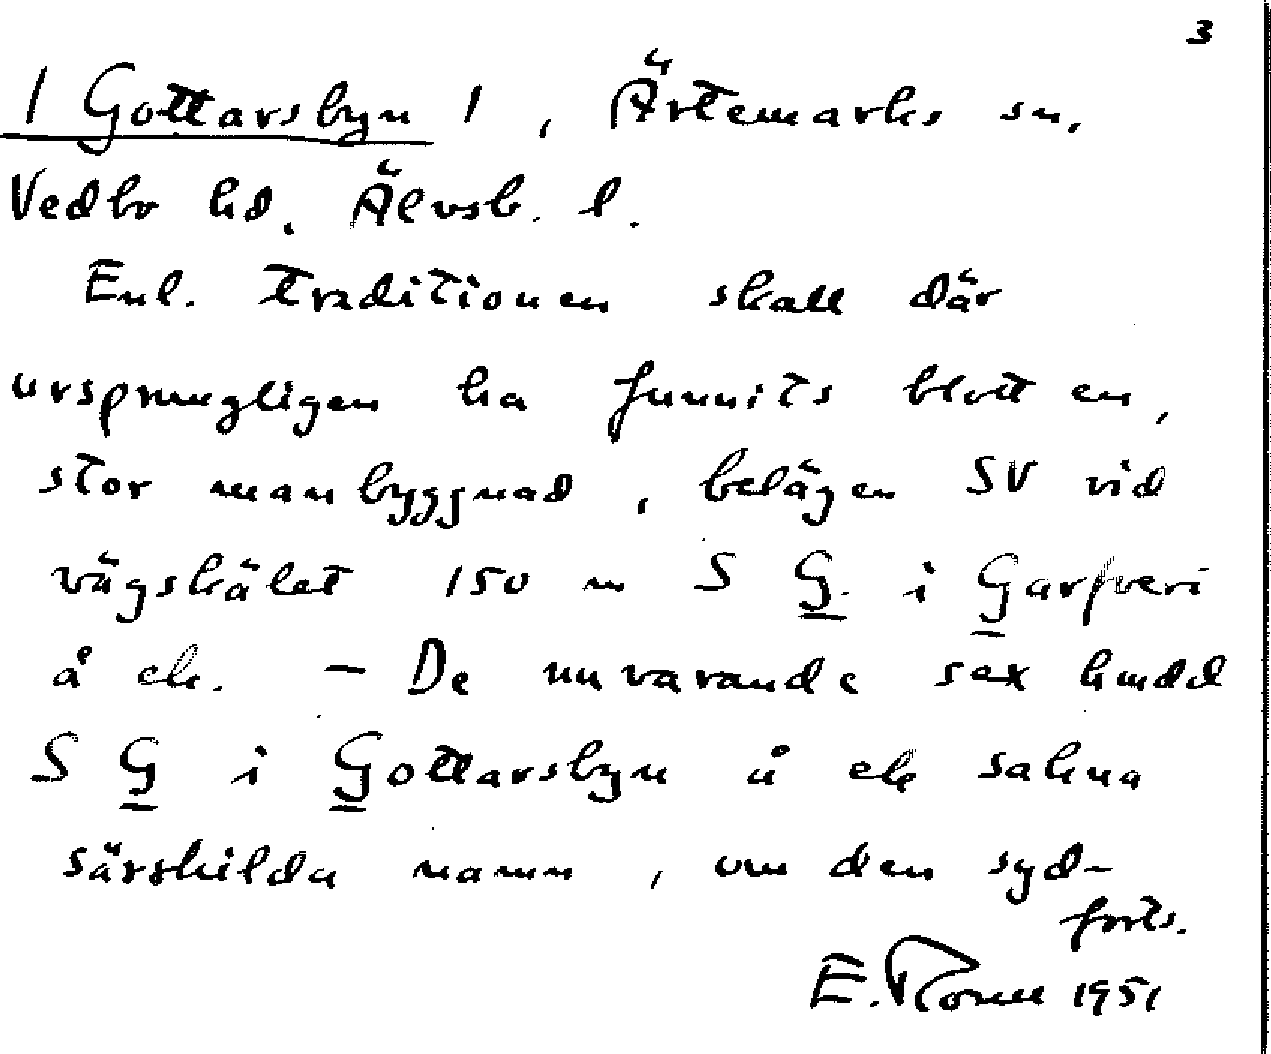 3
/ Gottarsbyn / , Ärtemarks sn,
Vedbo hd. Älvsb. l.
Enl. traditionen skall där
ursprungligen ha funnits blott en,
stor manbyggnad, belägen SV vid
vägskälet 150 m S G. i Garfveri
å ek. – De nuvarande sex hmdd
S G i Gottarsbyn å ek sakna
särskilda namn, om den syd-
forts.
E. 1951